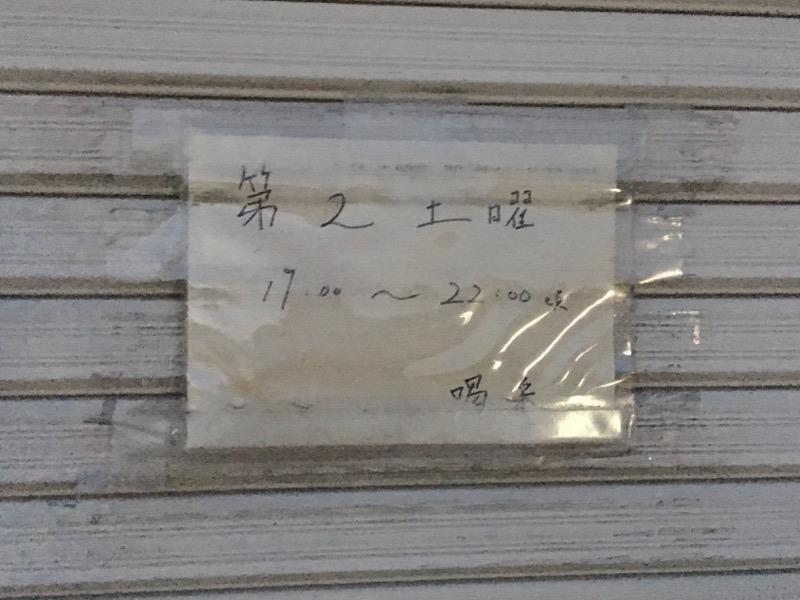 第2土曜
17:00〜22:00頃